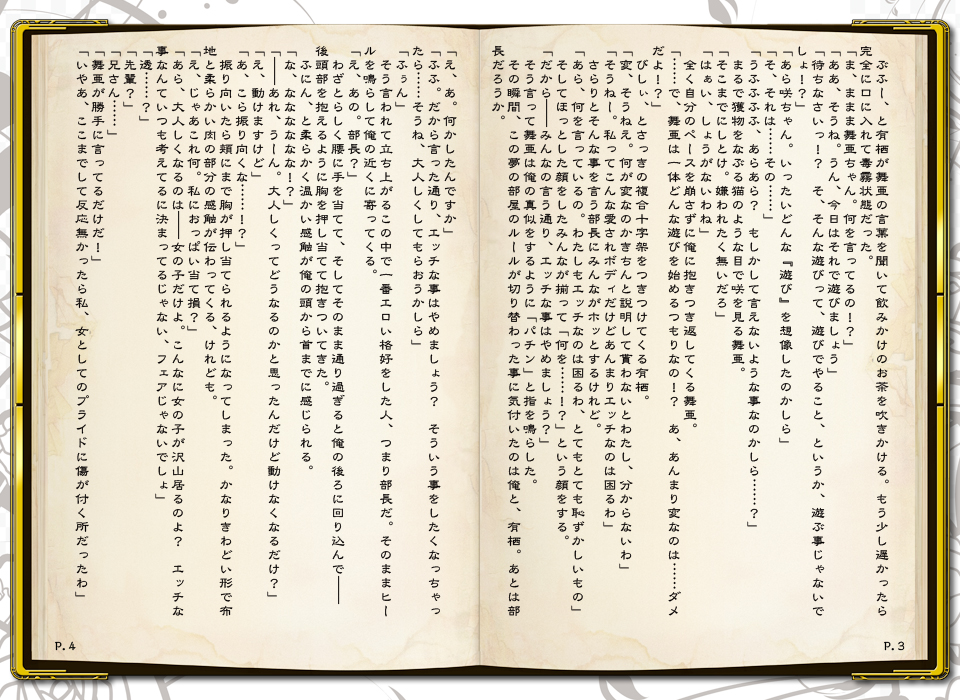 ぷふー、と有栖が舞亜の言葉を聞いて飲みかけのお茶を吹きかける。もう少し遅かったら
完全に口に入れて毒霧状態だった。
「ま、まままま舞亜ちゃん。何を言ってるの！？」
「ああ、そうね。うん、今日はそれで遊びましょう」
「待ちなさいっ！？　そ、そんな遊びって、遊びでやること、というか、遊ぶ事じゃないで
しょ！？」
「あら咲ちゃん。いったいどんな『遊び』を想像したのかしら」
「そ、それは……その……」
「うふふふふ、あらあら？　もしかして言えないような事なのかしら……？」
まるで獲物をなぶる猫のような目で咲を見る舞亜。
「そこまでにしとけ。嫌われたく無いだろ」
「はぁい、しょうがないわね」
全く自分のペースを崩さずに俺に抱きつき返してくる舞亜。
「……で、舞亜は一体どんな遊びを始めるつもりなの！？　あ、あんまり変なのは……ダメ
だよ！？」
びしぃ、とさっきの複合十字架をつきつけてくる有栖。
「変、そうねえ。何が変なのかきちんと説明して貰わないとわたし、分からないわ」
「そうねー。私もこんな愛されボディだけどあんまりエッチなのは困るわ」
さらりとそんな事を言う部長にみんながホッとするけれど。
「あら、何を言っているの。わたしもエッチなのは困るわ、とてもとても恥ずかしいもの」
そしてほっとした顔をしたみんなが揃って「何を……！？」という顔をする。
「だから――みんなの言う通り、エッチな事はやめましょう？」
そう言って舞亜は俺の真似をするように「パチン」と指を鳴らした。
その瞬間、この夢の部屋のルールが切り替わった事に気付いたのは俺と、有栖。あとは部
長だろうか。
P.3
「え、あ。何かしたんですか」
「ふふ。だから言った通り、エッチな事はやめましょう？　そういう事をしたくなっちゃっ
たら……そうね、大人しくしてもらおうかしら」
「ふぅん」
そう言われて立ち上がるこの中で一番エロい格好をした人、つまり部長だ。そのままヒー
ルを鳴らして俺の近くに寄ってくる。
「え、あの。部長？」
わざとらしく腰に手を当てて、そしてそのまま通り過ぎると俺の後ろに回り込んで――
後頭部を抱えるように胸を押し当てて抱きついてきた。
ふにん、と柔らかく温かい感触が俺の頭から首までに感じられる。
「な、なななななな！？」
「――あれ、うーん。大人しくってどうなるのかと思ったんだけど動けなくなるだけ？」
「え、動けますけど」
「あ、こら振り向くな……！？」
振り向いたら頬にまで胸が押し当てられるようになってしまった。かなりきわどい形で布
地と柔らかい肉の部分の感触が伝わってくる、けれども。
「え、じゃあこれ何。私におっぱい当て損？」
「あら、大人しくなるのは――女の子だけよ。こんなに女の子が沢山居るのよ？　エッチな
事なんていつも考えてるに決まってるじゃない、フェアじゃないでしょ」
「透……？」
「先輩？」
「兄さん……」
「舞亜が勝手に言ってるだけだ！」
「いやあ、ここまでして反応無かったら私、女としてのプライドに傷が付く所だったわ」
P.4